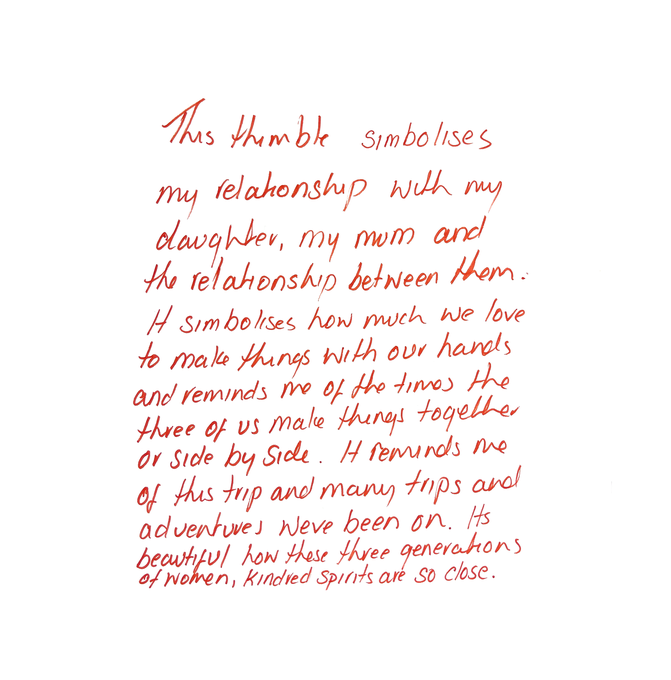 This thimble simbolises
my relationship with my
daughter, my mum and
the relationship between them.
It simbolises how much we love
to make things with our hands
and reminds me of the times the
three of us make things together
or side by side. It reminds me
of this trip and many trips and
adventures weve been on. Its
beautiful how these three generations
of women, kindred spirits are so close.